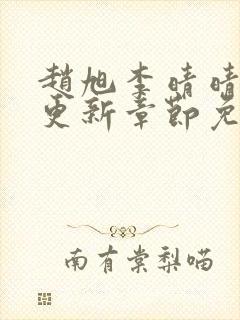 趙旭李晴晴
更新章節免
南有棠梨喵